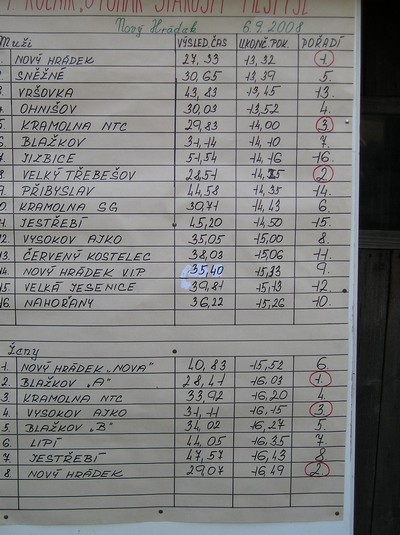 Nový Hrádek 6.9.2008
Muži VÝSLED.ČAS UKONČ.POK. POŘADÍ
NOVÝ HRÁDEK 27,33 13,32 1.
SNĚŽNÉ 30,65 13,39 5.
VRŠOVKA 43,83 13,45 13.
OHNIŠOV 30,03 13,52 4.
5. KRAMOLNA NTC 29,83 14,00 3.
6. BLAŽKOV 31,14 14,10 7.
7. JIZBICE 51,54 14,16 16.
8. VELKÝ TŘEBEŠOV 28,51 14,25 2.
9. PŘIBYSLAV 44,58 14,35 14.
KRAMOLNA SG 30,71 14,43 6.
11. JESTŘEBÍ 45,20 14,50 15.
12. VYSOKOV AJKO 35,05 15,00 8.
13. ČERVENÝ KOSTELEC 38,03 15,06 11.
14. NOVÝ HRÁDEK V.I.P. 35,40 9.
15. VELKÁ JESENICE 39,81 15,13 12.
16. NAHOŘANY 36,22 15,26 10.
Ženy
1. NOVÝ HRÁDEK „NOVA" 40,83 15,52 6.
2. BLAŽKOV „A" 28,41 16,03 1.
3. KRAMOLNA NTC 33,92 16,20 4.
4. VYSOKOV AJKO 31,11 16,15 3.
5. BLAŽKOV „B" 34,02 16,27 5.
6. LIPÍ 44,05 16,35 7.
7. JESTŘEBÍ 47,57 16,43 8.
8. NOVÝ HRÁDEK 29,07 16,49 2.